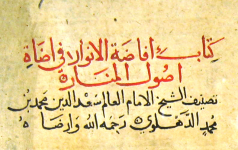 كتاب افاضة الانوار في اضاة
اصول المنار
تصنيف الشيخ الامام العالم سعد الدين محمد بن
محمد الدهلوي رحمه الله وارضاه